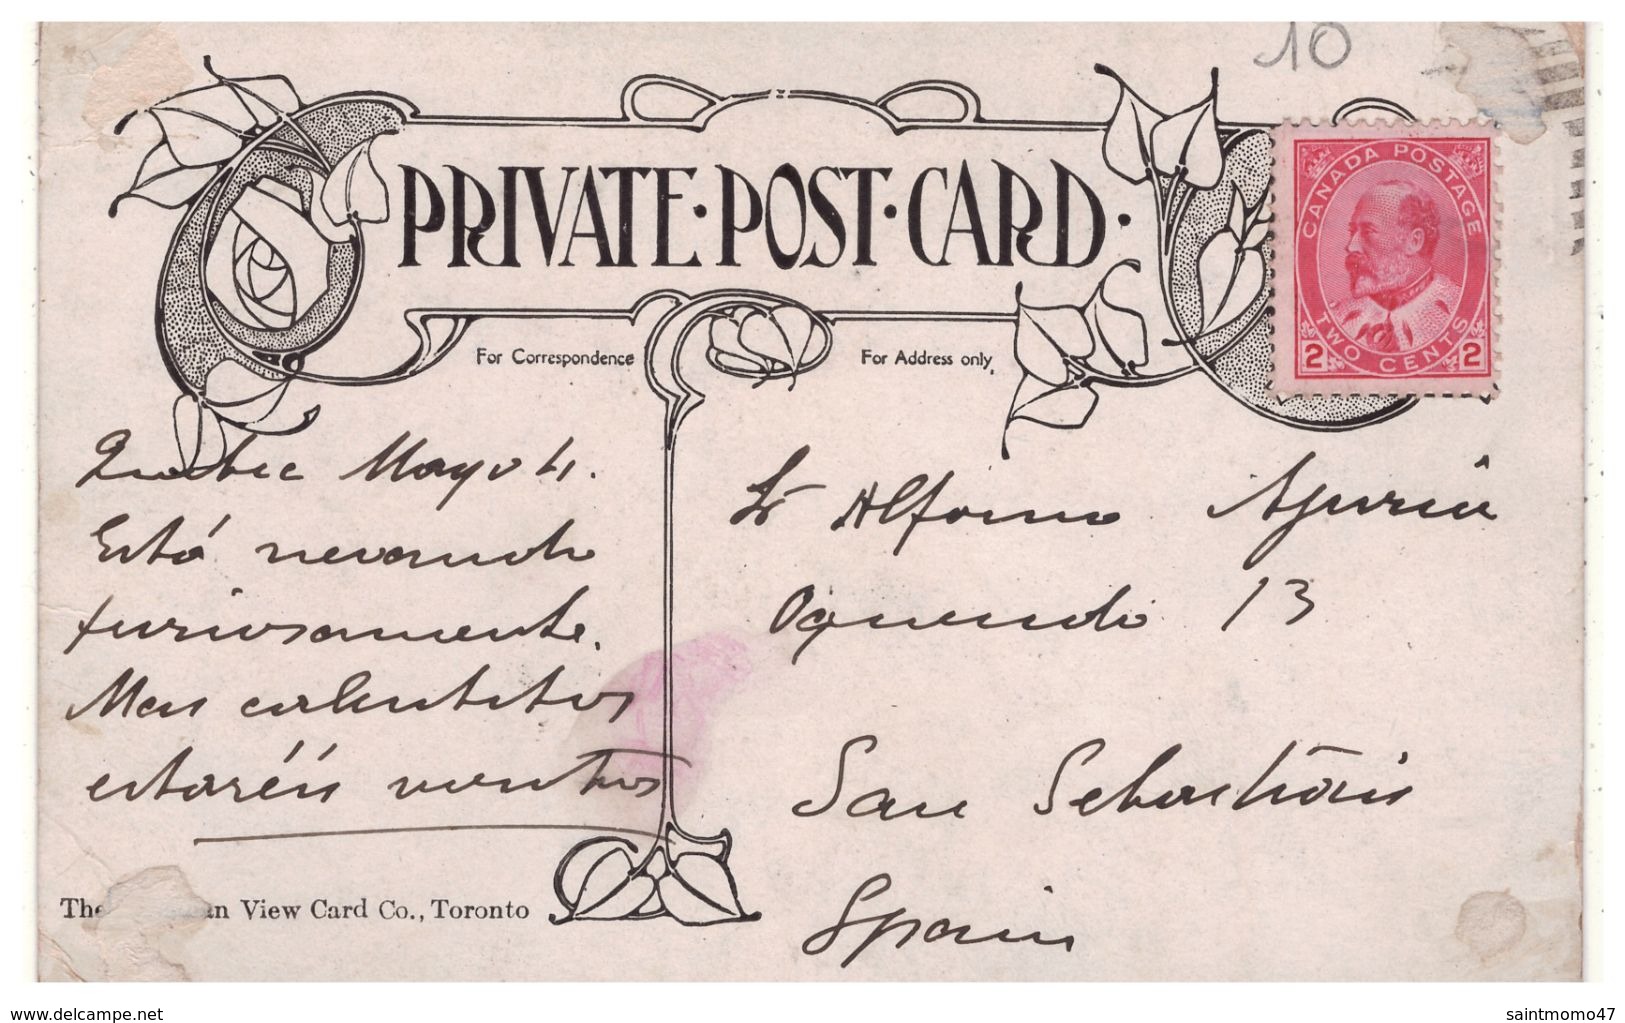 10
CANADA POSTAGE
TWO CENTS
2 2
PRIVATE·POST·CARD·
For Correspondence
For Address only.
Quebec Mayo 4.
Está nevando
furiosamente.
Mas calentitos
estaréis vosotros
Sr Alfonso
Oquendo 13
San Sebastián
Spain
The an View Card Co., Toronto
www.delcampe.net
saintmomo47